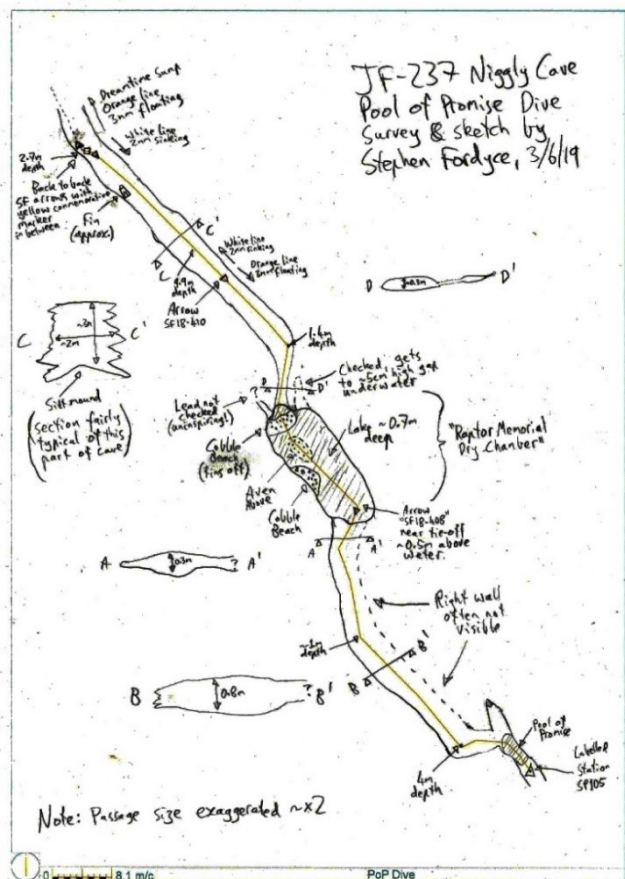 JF-237 Niggly Cave
Pool of Promise Dive
Survey & sketch by
Stephen Fordyce, 3/6/19
Dreamtime Sump
Orange line
3mm floating
White line
2mm sinking
2.7m
depth
Back to back
SF arrows with
yellow commemorative
marker
in between
Fin
(approx.)
C'
C
White line
2mm sinking
Orange line
3mm floating
4.9m
depth
Arrow
SF18-410
D
~0.3m
D'
C
~3m
~2m
C'
Silt mound
(section fairly
typical of this
part of cave)
1.4m
depth
Checked, gets
to ~5cm high gap
underwater
D
D'
?
Lead not
checked
(uninspiring)
Lake ~0.7m
deep
"Raptor Memorial
Dry Chamber"
Cobble
Beach
(fins off)
Aven
Above
Cobble
Beach
Arrow
"SF18-408"
near tie-off
~0.5m above
water.
A
A'
A
0.3m
?
A'
Right wall
often not
visible
~1m
depth
B'
B
B
0.8m
?
B'
Pool of
Promise
Labelled
Station
SP105
4m
depth
Note: Passage size exaggerated ~x2
0
8.1 m/c
PoP Dive